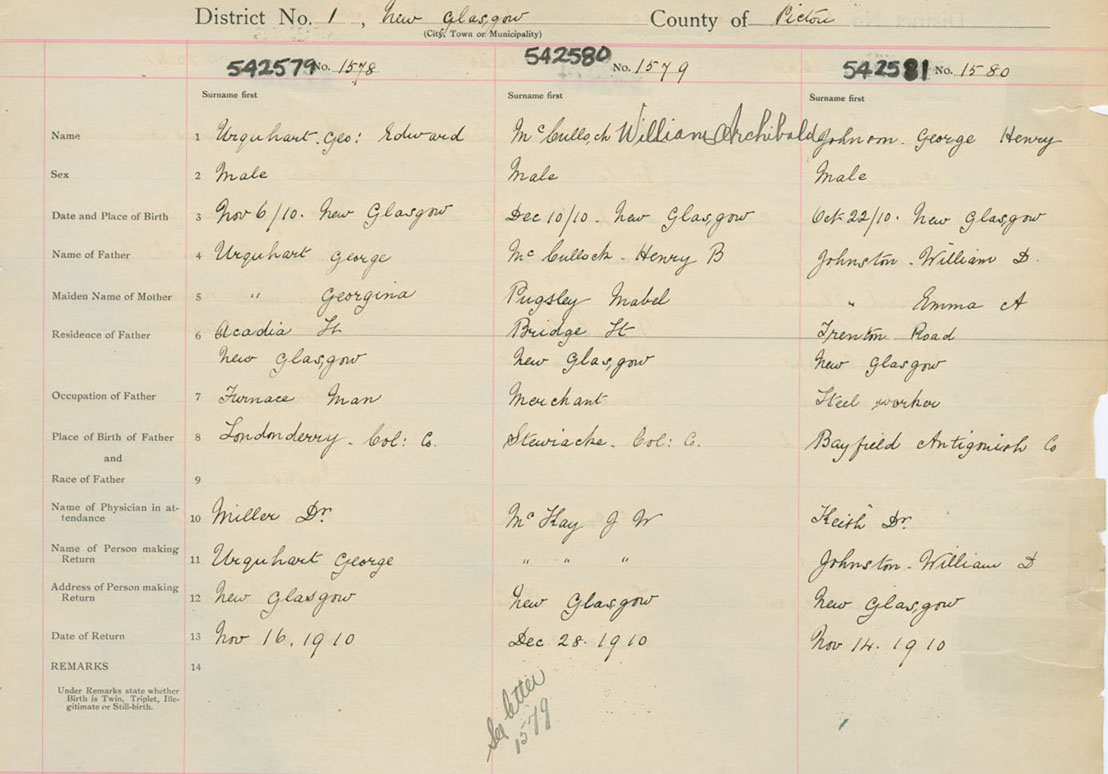 District No. 1, New Glasgow County of Pictou
(City, Town or Municipality)
542579 No. 1578 542580 No. 1579 542581 No. 1580
Surname first Surname first Surname first
Name 1 Urquhart. Geo: Edward McCulloch William Archibald Johnson. George Henry
Sex 2 Male Male Male
Date and Place of Birth 3 Nov 6/10. New Glasgow Dec 10/10. New Glasgow Oct 22/10. New Glasgow
Name of Father 4 Urquhart George McCullock - Henry B Johnston - William D.
Maiden Name of Mother 5 " Georgina Pugsley Mabel " Emma A
Residence of Father 6 Acadia St Bridge St Trenton Road
New Glasgow New Glasgow New Glasgow
Occupation of Father 7 Furnace Man Merchant Steel worker
Place of Birth of Father 8 Londonderry - Col: Co. Stewiacke - Col: Co. Bayfield Antigonish Co
and
Race of Father 9
Name of Physician in at-
tendance 10 Miller Dr. McKay J W Keith Dr.
Name of Person making
Return 11 Urquhart George " " " Johnston - William D
Address of Person making
Return 12 New Glasgow New Glasgow New Glasgow
Date of Return 13 Nov 16, 1910 Dec 28. 1910 Nov 14. 1910
REMARKS 14
Under Remarks state whether
Birth is Twin, Triplet, Ille-
gitimate or Still-birth.
See letter
1579